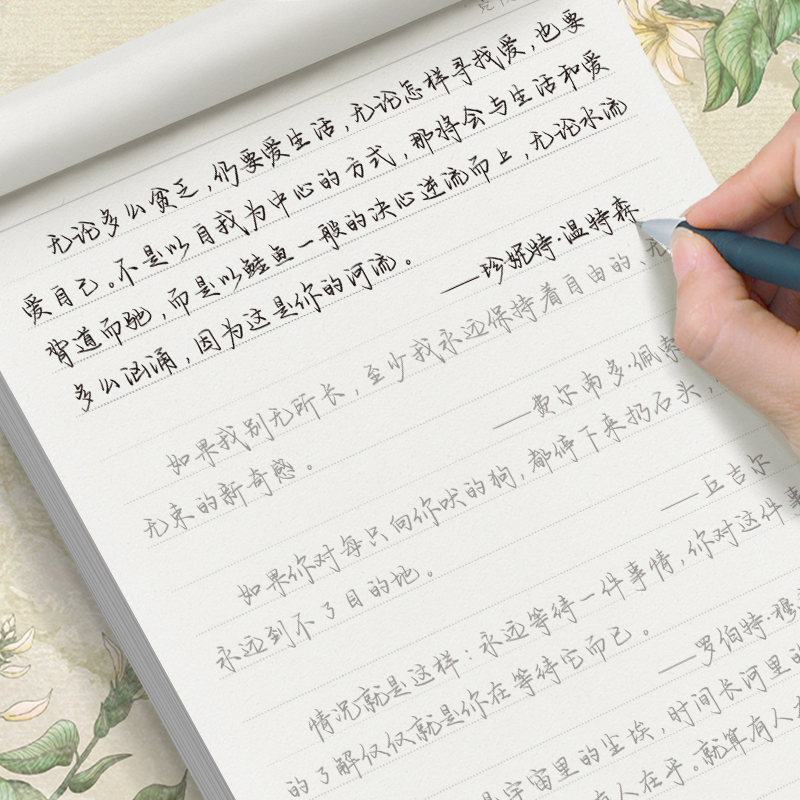 无论多么贫乏，仍要爱生活，无论怎样寻找爱，也要
爱自己。不是以自我为中心的方式，那将会与生活和爱
背道而驰，而是以鲑鱼一般的决心逆流而上，无论水流
多么汹涌，因为这是你的河流。
——珍妮特·温特森
如果我别无所长，至少我永远保持着自由的、无
无束的新奇感。
——费尔南多·佩索
如果你对每只向你吠的狗，都停下来扔石头，
永远到不了目的地。
——丘吉尔
情况就是这样：永远等待一件事情，你对这件事
的了解仅仅就是你在等待它而已。
——罗伯特·穆
是宇宙里的尘埃，时间长河里的
有人在乎。就算有人在